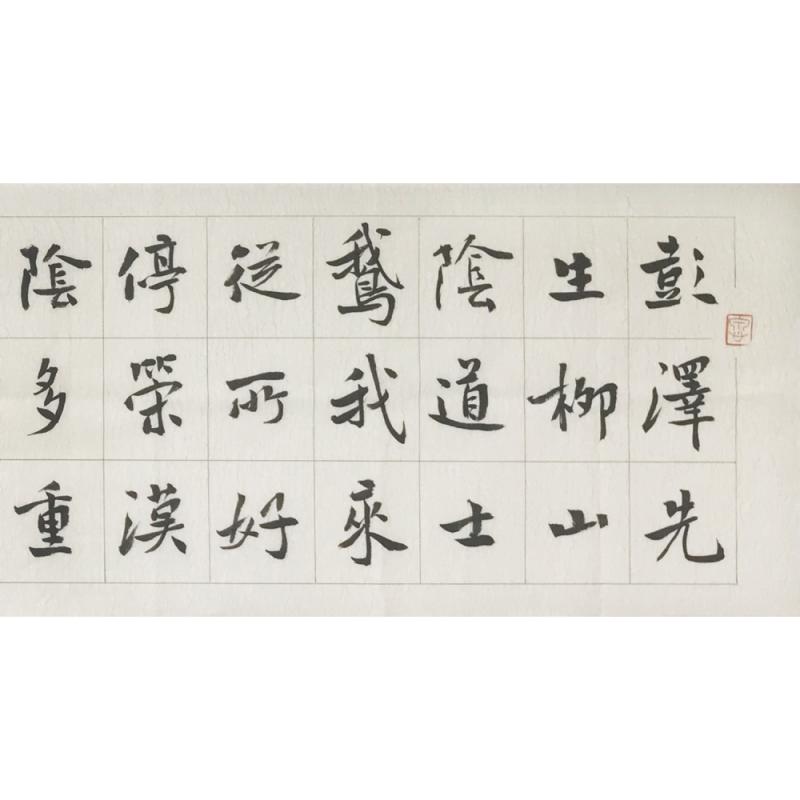 彭澤先
生柳山
陰道士
鵝我來
從所好
停策漢
陰多重